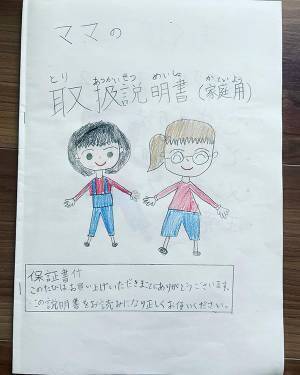 ママの
とり あつかいせつ めいしょ かていよう
取扱説明書(家庭用)
保証書付
このたびはお買い上げいただきまことにありがとうございます。
この説明書をお読みになり正しくお使いください。